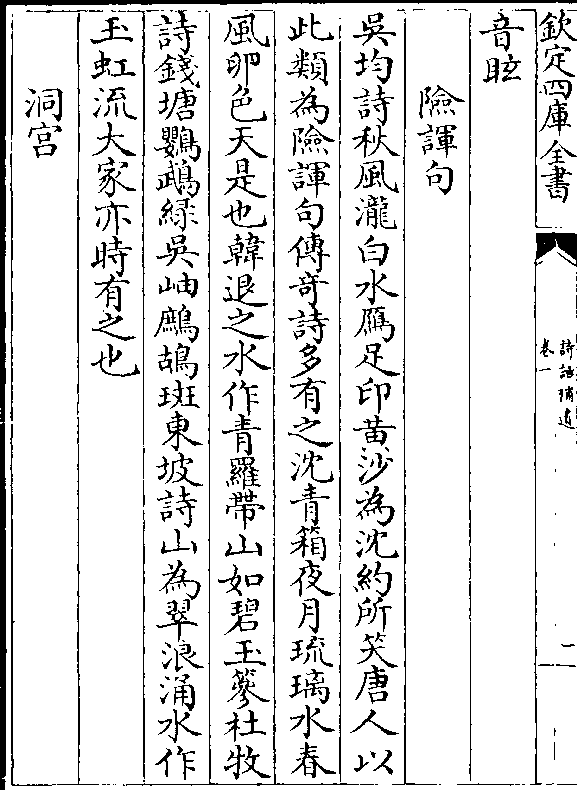 欽定四庫全書
詩話補遺
卷一
二
音眩
險諢句
吳均詩秋風瀧白水鴈足印黄沙為沈約所笑唐人以
此類為險諢句傳奇詩多有之沈青箱夜月琉璃水春
風卵色天是也韓退之水作青羅帶山如碧玉篸杜牧
詩錢塘鸚鵡綠吳岫鷓鴣斑東坡詩山為翠浪涌水作
玉虹流大家亦時有之也
洞宫